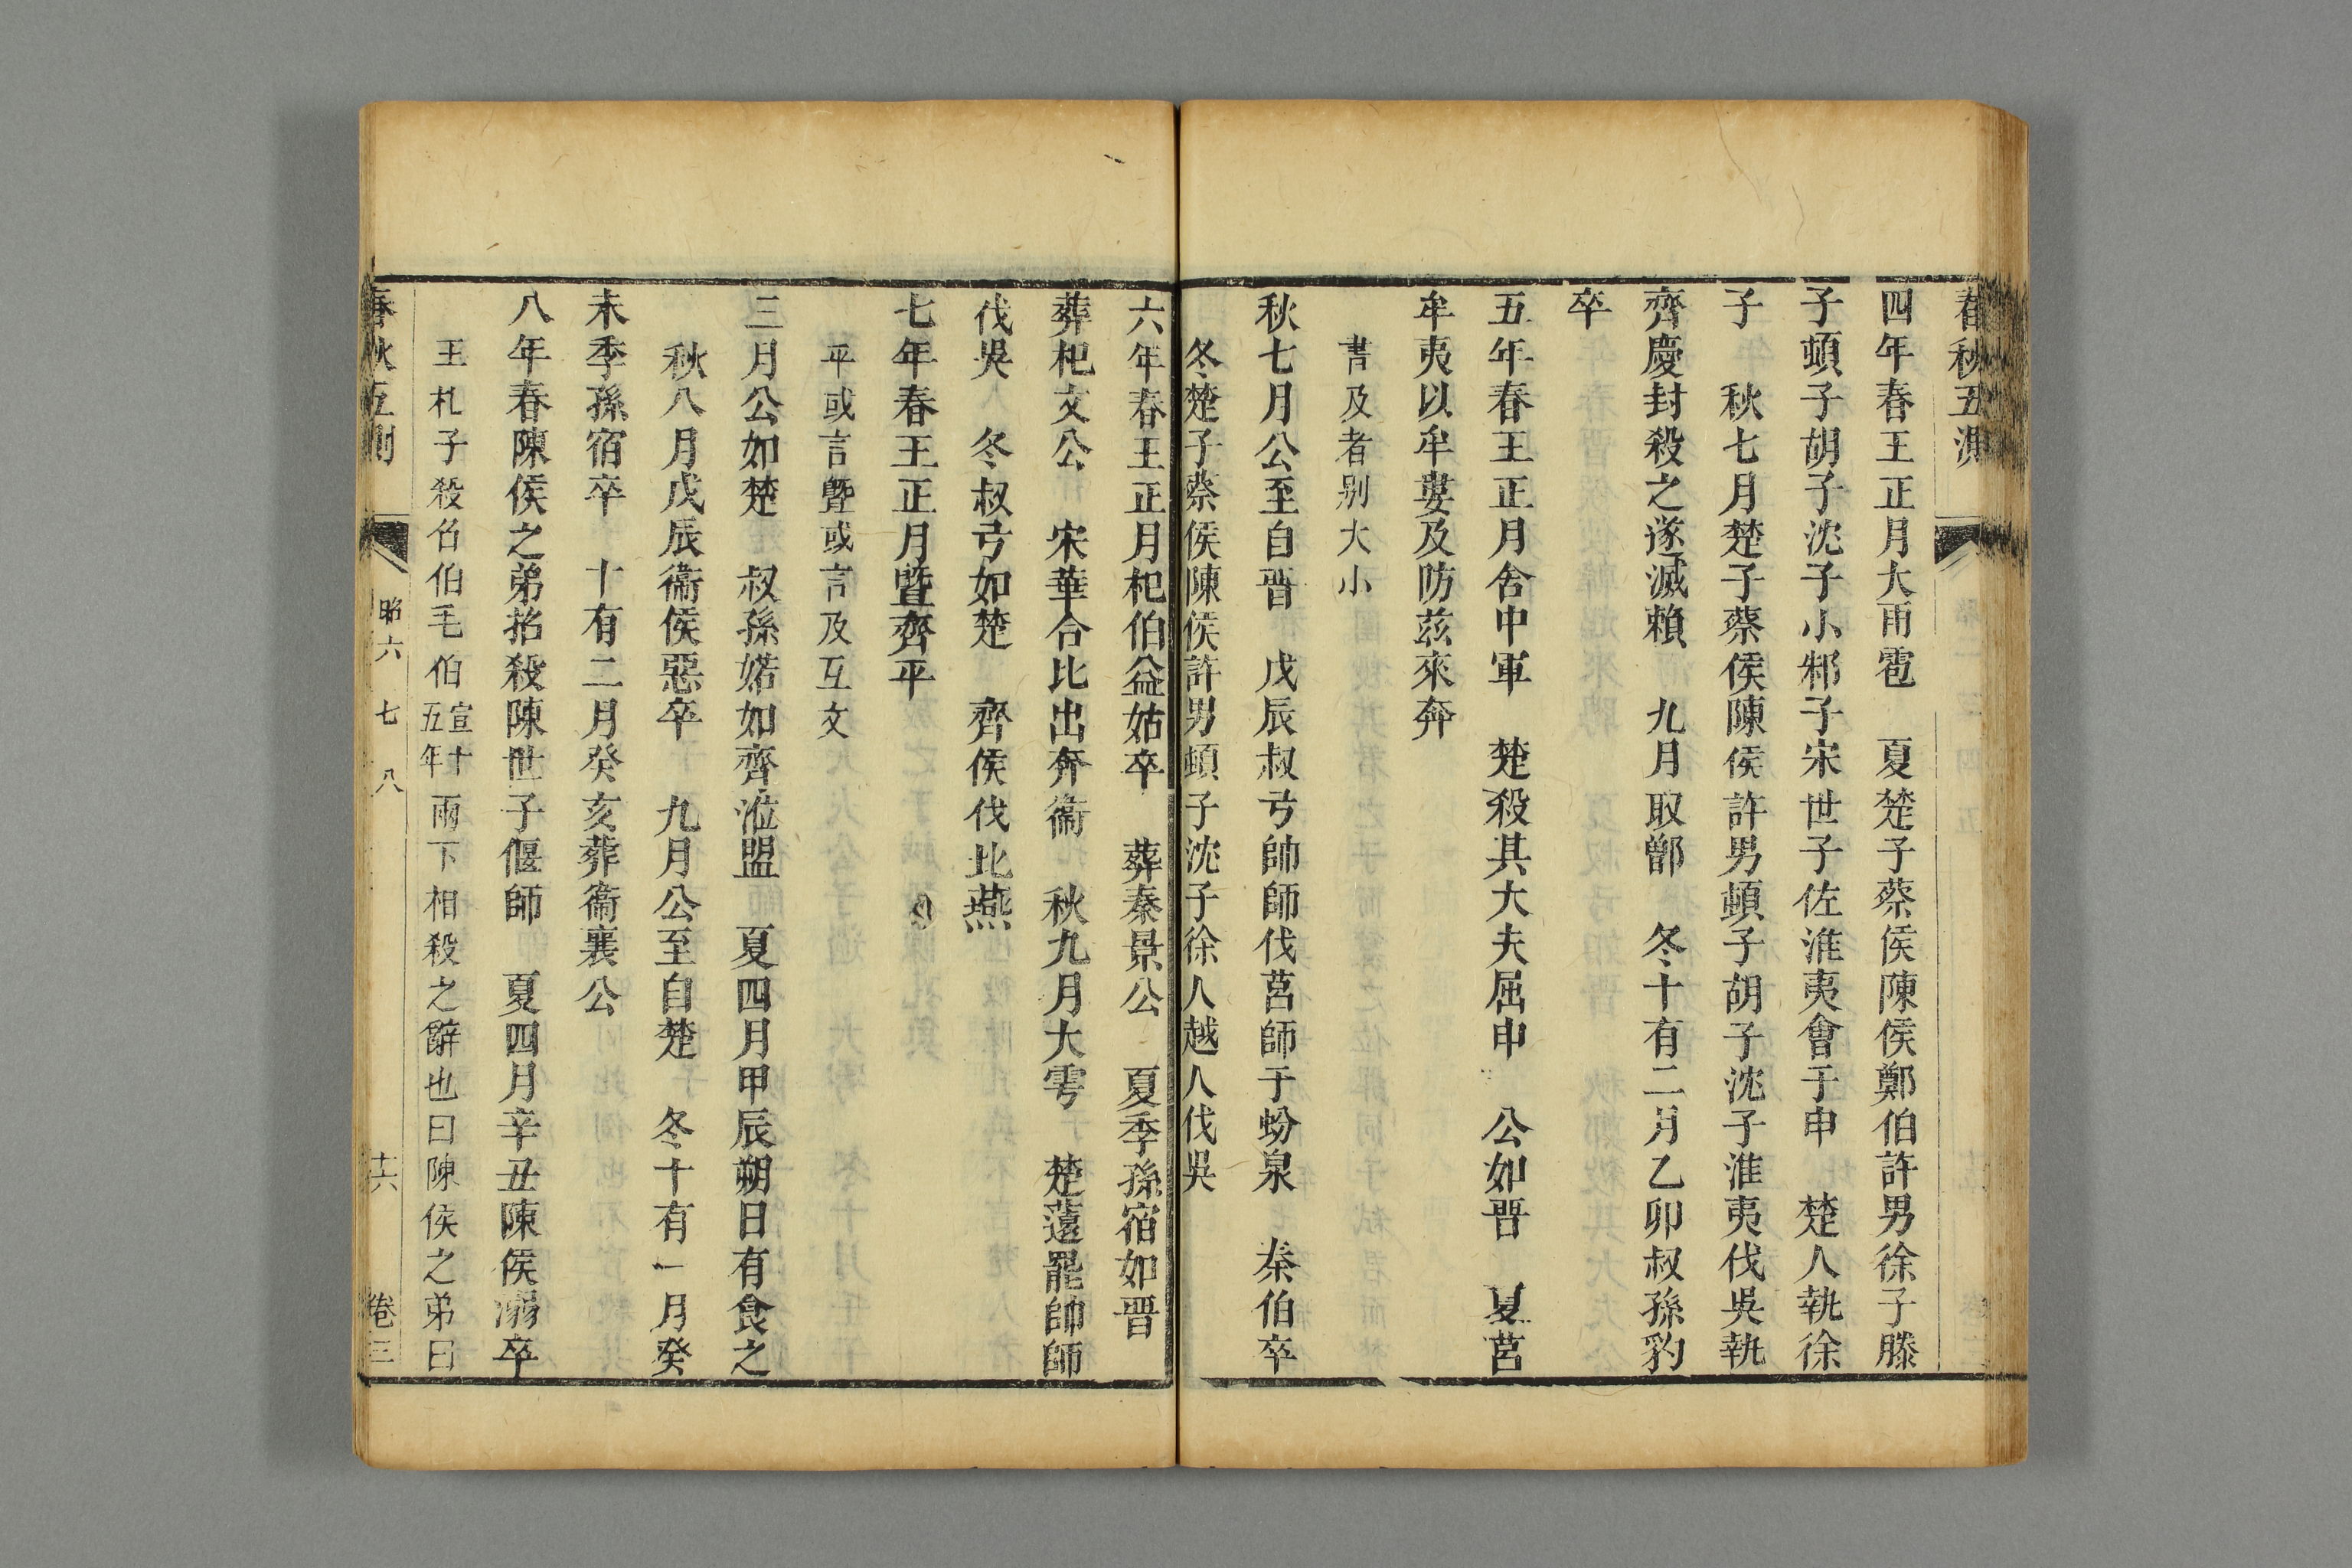 春秋五測
四年春王正月大雨雹　夏楚子蔡侯陳侯鄭伯許男徐子滕
子頓子胡子沈子小邾子宋世子佐淮夷會于申　楚人執徐
子　秋七月楚子蔡侯陳侯許男頓子胡子沈子淮夷伐吳執
齊慶封殺之遂滅賴　九月取鄫　冬十有二月乙卯叔孫豹
卒
五年春王正月舍中軍　楚殺其大夫屈申　公如晉　夏莒
牟夷以牟婁及防茲來奔
書及者别大小
秋七月公至自晉　戊辰叔弓帥師伐莒師于蚡泉　秦伯卒
冬楚子蔡侯陳侯許男頓子沈子徐人越人伐吳
六年春王正月杞伯益姑卒　葬秦景公　夏季孫宿如晉
葬杞文公　宋華合比出奔衞　秋九月大雩　楚薳罷帥師
伐吳　冬叔弓如楚　齊侯伐北燕
七年春王正月暨齊平
平或言曁或言及互文
三月公如楚　叔孫婼如齊涖盟　夏四月甲辰朔日有食之
秋八月戊辰衞侯惡卒　九月公至自楚　冬十有一月癸
未季孫宿卒　十有二月癸亥葬衞襄公
八年春陳侯之弟招殺陳世子偃師　夏四月辛丑陳侯溺卒
王札子殺召伯毛伯宣十五年兩下相殺之辭也曰陳侯之弟曰
春秋五測　昭六　七　八　十六　卷三